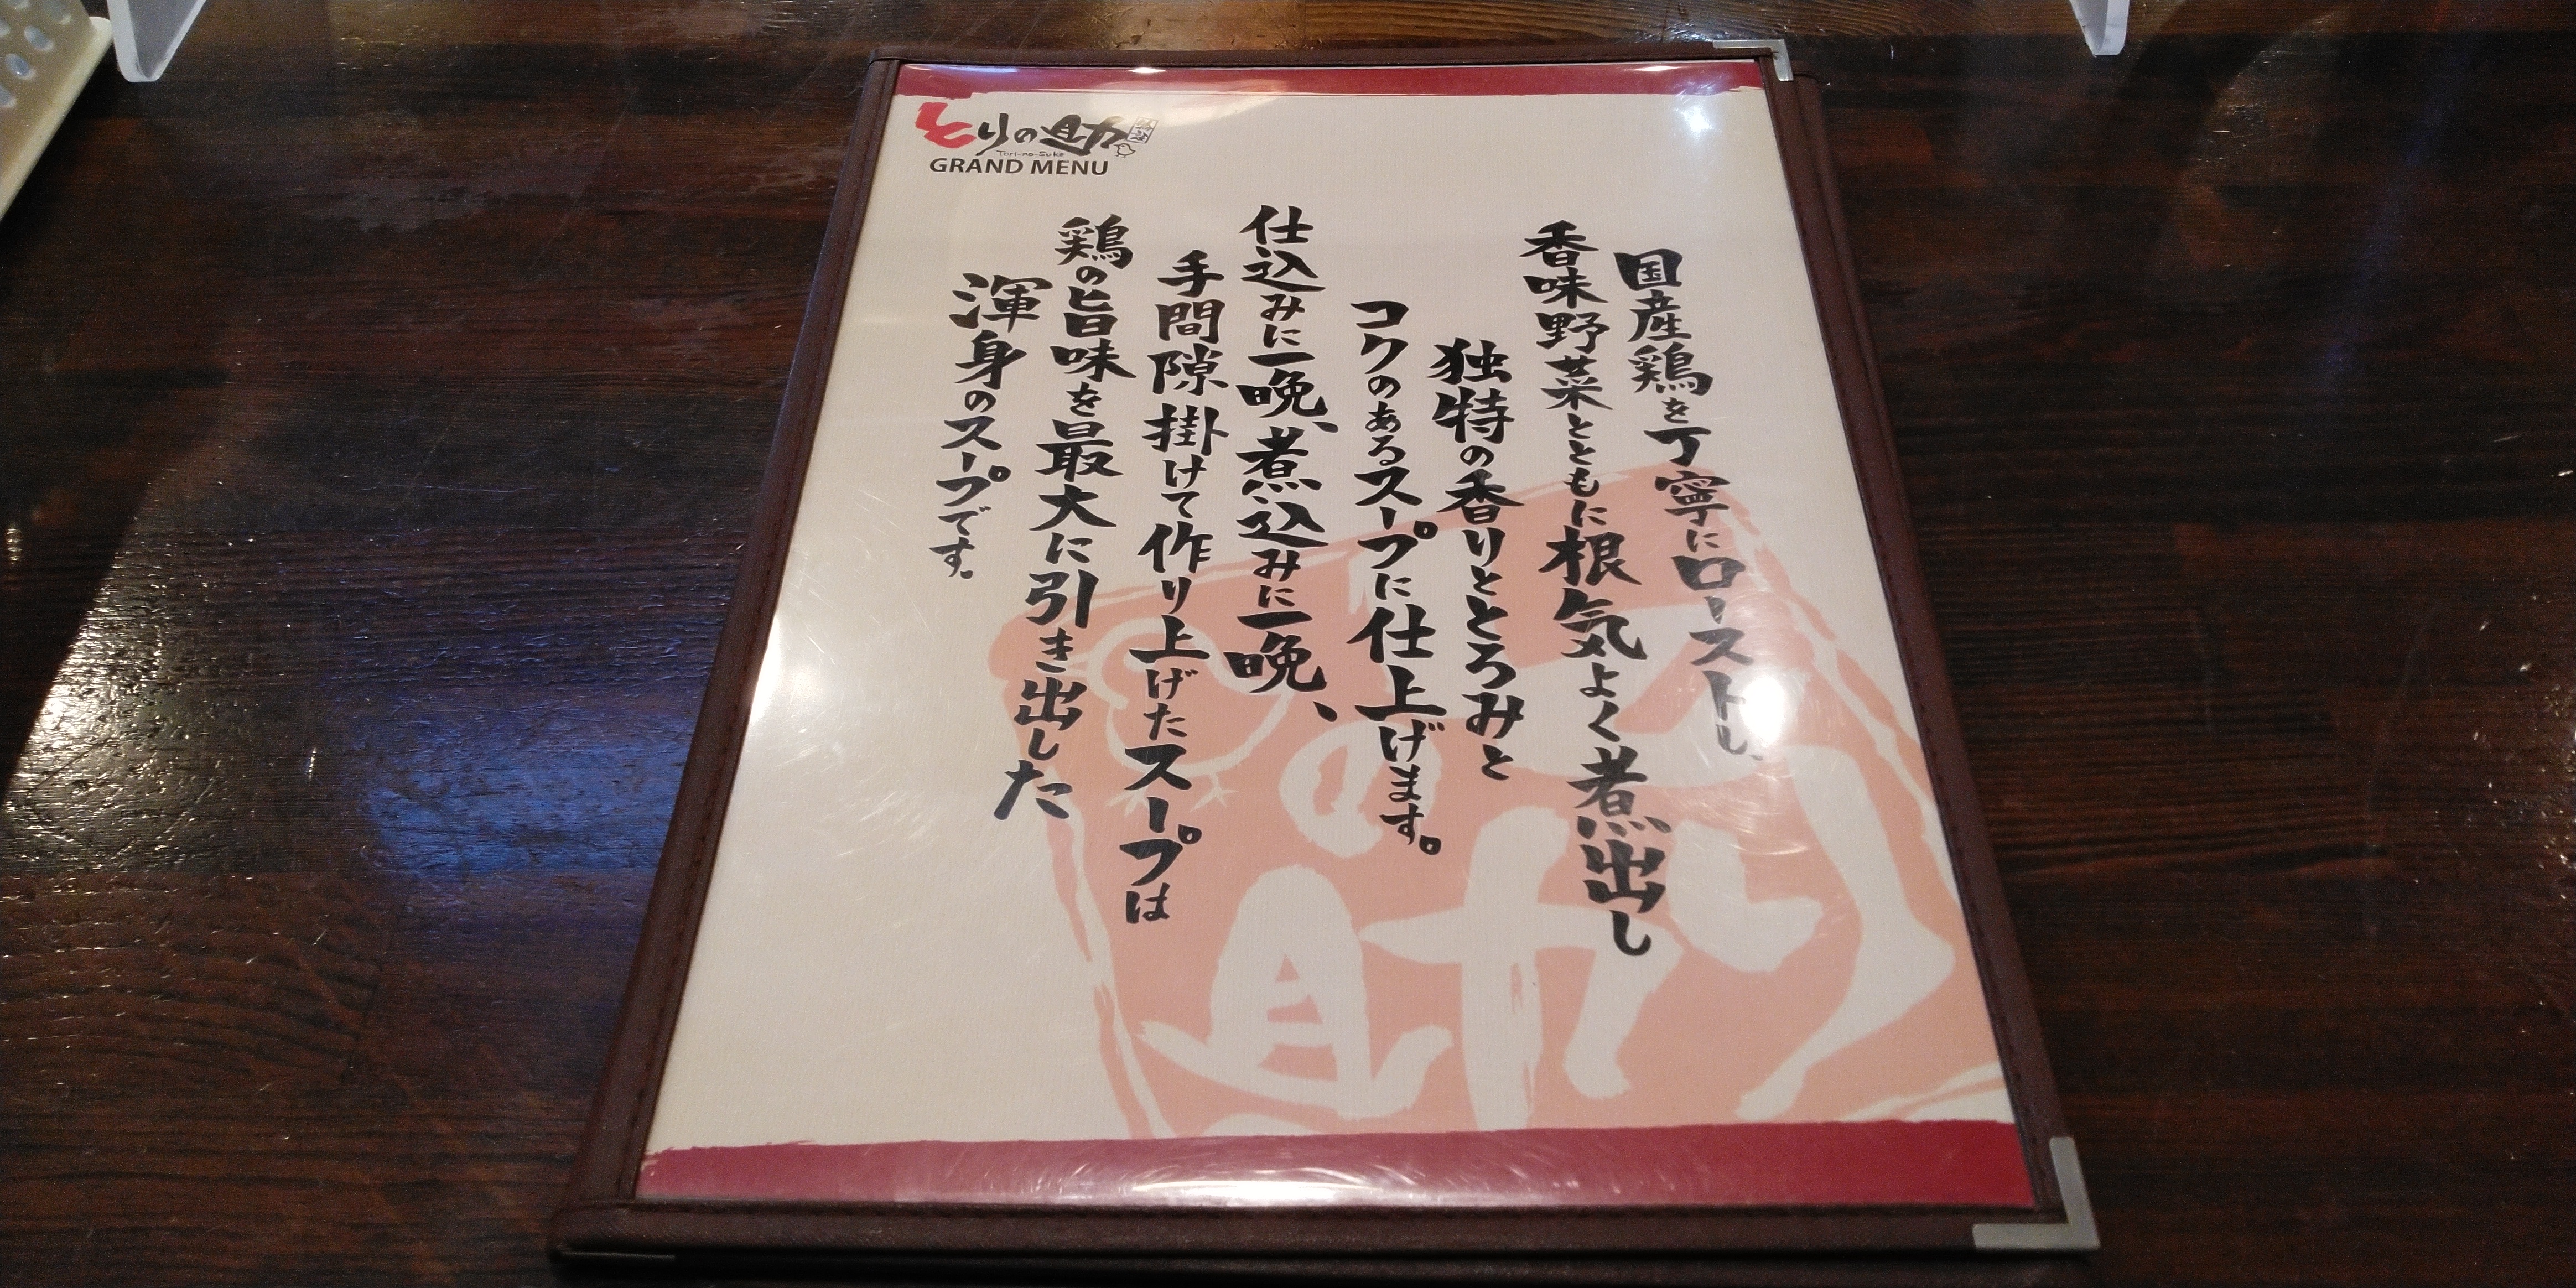 とりの助
Tori-no-Suke
GRAND MENU
国産鶏を丁寧にローストし、
香味野菜とともに根気よく煮出し
独特の香りととろみと
コクのあるスープに仕上げます。
仕込みに一晩、煮込みに一晩、
手間隙掛けて作り上げたスープは
鶏の旨味を最大に引き出した
渾身のスープです。